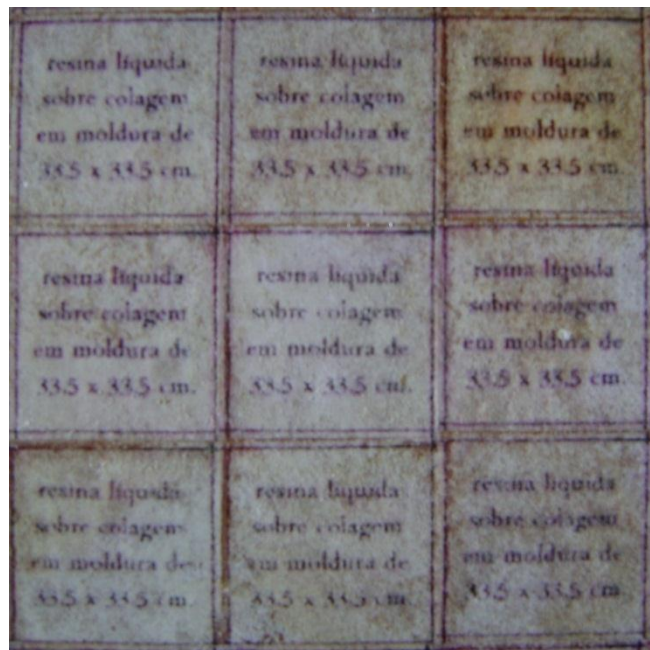 resina líquida
sobre colagem
em moldura de
33.5 x 33.5 cm.
resina líquida
sobre colagem
em moldura de
33.5 x 33.5 cm.
resina líquida
sobre colagem
em moldura de
33.5 x 33.5 cm.
resina líquida
sobre colagem
em moldura de
33.5 x 33.5 cm.
resina líquida
sobre colagem
em moldura de
33.5 x 33.5 cm.
resina líquida
sobre colagem
em moldura de
33.5 x 33.5 cm.
resina líquida
sobre colagem
em moldura de
33.5 x 33.5 cm.
resina líquida
sobre colagem
em moldura de
33.5 x 33.5 cm.
resina líquida
sobre colagem
em moldura de
33.5 x 33.5 cm.